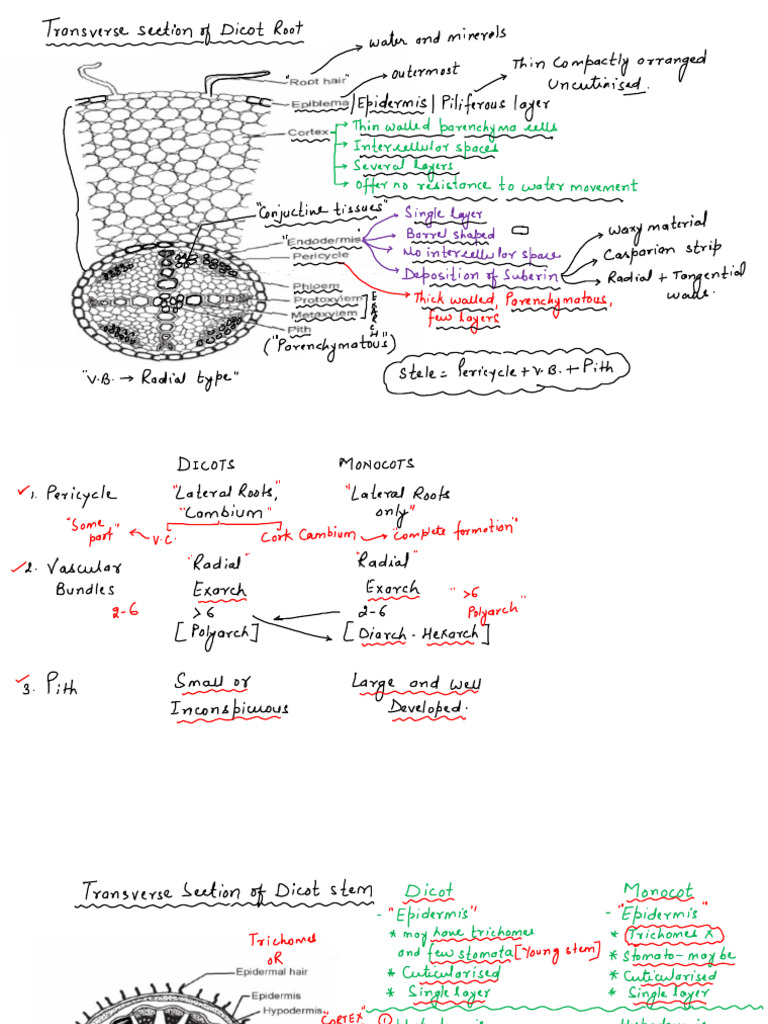 Transverse section of Dicot Root
water and minerals
"Root hair"
outermost
Thin Compactly arranged
Uncutinised.
Epiblema | Epidermis | Piliferous layer
Cortex
Thin walled parenchyma cells
Intercellular spaces
Several layers
Offer no resistance to water movement
"Conjuctive tissues"
"Endodermis
Single layer
Barrel shaped
No intercellular space
Deposition of Suberin
waxy material
Casparian strip
Radial + Tangential
walls.
Pericycle
Thick walled, Parenchymatous,
few layers
Phloem
Protoxylem
Metaxylem
EXARCH
Pith
("Parenchymatous")
"V.B. → Radial type"
Stele = Pericycle + V.B. + Pith
DICOTS MONOCOTS
1. Pericycle "Lateral Roots, "Lateral Roots
"Cambium" only"
"Some part" ← V.C. Cork Cambium → "Complete formation"
2. Vascular "Radial" "Radial"
Bundles Exarch Exarch ">6
2-6 >6 2-6 Polyarch"
[Polyarch] [Diarch - Hexarch]
3. Pith Small or Large and well
Inconspicuous Developed.
Transverse Section of Dicot stem
Dicot Monocot
- "Epidermis" - "Epidermis"
* may have trichomes * Trichomes X
and few stomata [Young stem] * Stomata - may be
* Cuticularised * Cuticularised
* Single layer * Single layer
Trichomes
OR
Epidermal hair
Epidermis
Hypodermis
"CORTEX"
①